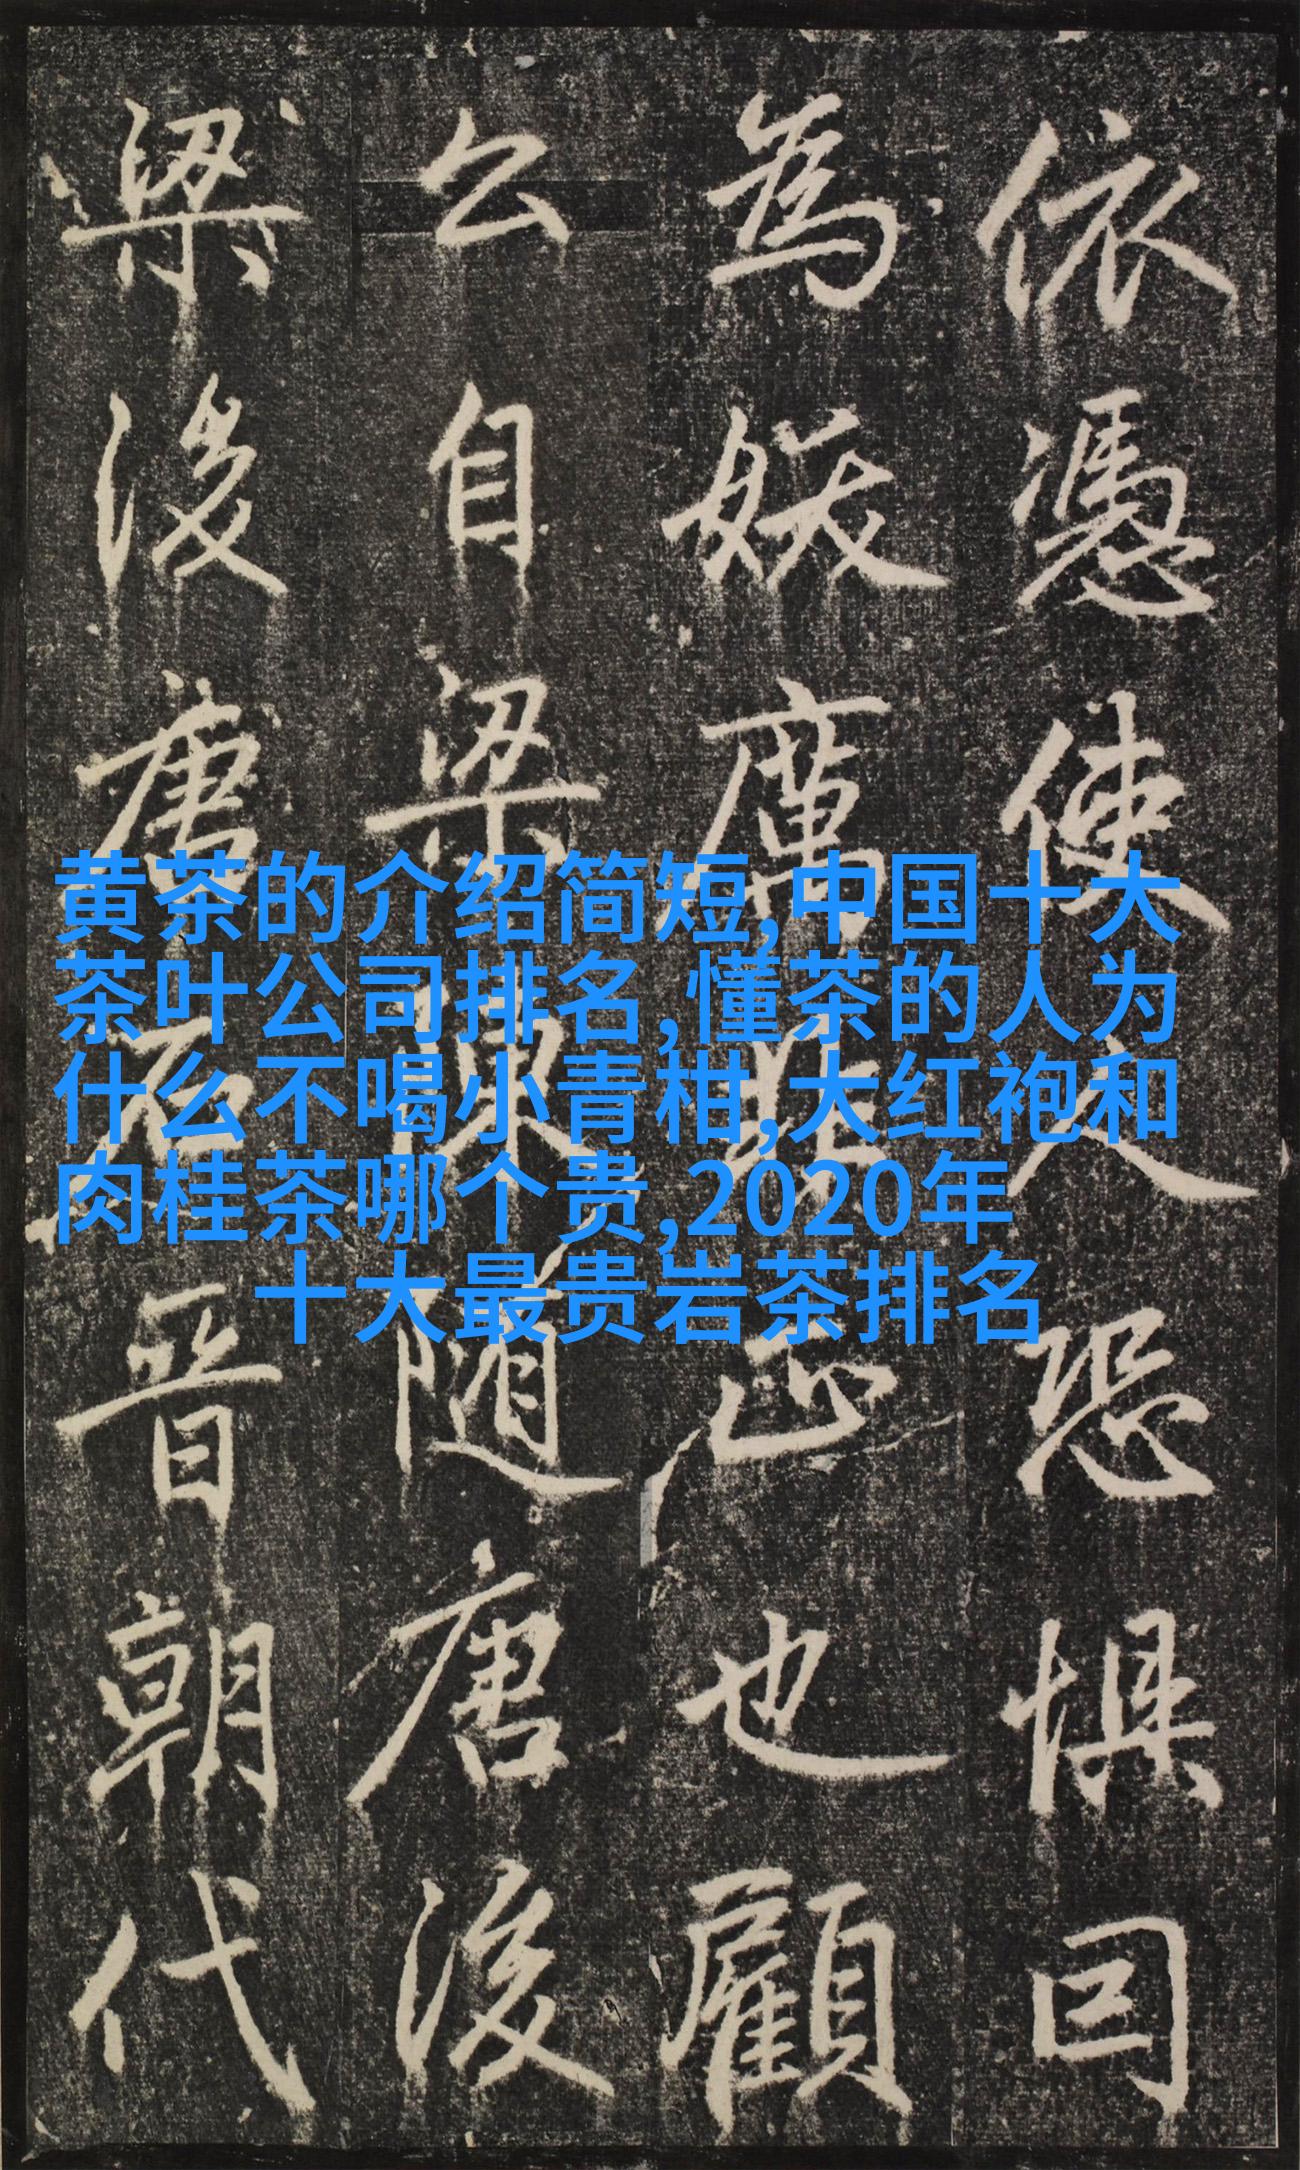 黄茶的介绍简短,中国十大
茶叶公司排名,懂茶的人为
什么不喝小青柑,大红袍和
肉桂茶哪个贵,2020年
十大最贵岩茶排名
依憑使人恐惧囙
為妖厲正也顧
公自梁陳随唐後
梁後唐石晋朝代